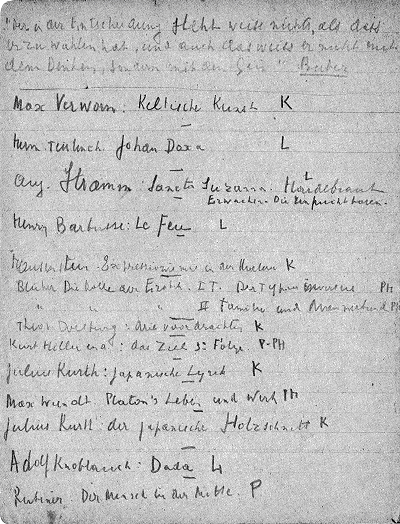 "Der in der Entscheidung steht weiss nichts, als dass
er zu wählen hat, und auch das weiss er nicht mit
dem Denken, sondern mit dem Sein" Buber
Max Verworn: Keltische Kunst K
Herm. Johan Doxa L
Aug. Stramm: Sancta Susanna. Haidebraut L
Erwachen. Die Unfruchtbaren.
Henry Barbusse: Le Feu L
Hausenstein. Expressionismus in der Malerei K
Blüher Die Rolle der Erotik. I T. Der Typus Inversus PH
" " " " II Familie und Männerbund PH
Theo v Doesburg: drie voordrachten K
Kurt Hiller: das Ziel 3e Folge. P-PH
Julius Kurth: Japanische Lyrik K
Max Wundt. Platon's Leben und Werk PH
Julius Kurth: der japanische Holzschnitt K
Adolf Knoblauch: Dada L
Rubiner. Der Mensch in der Mitte. P